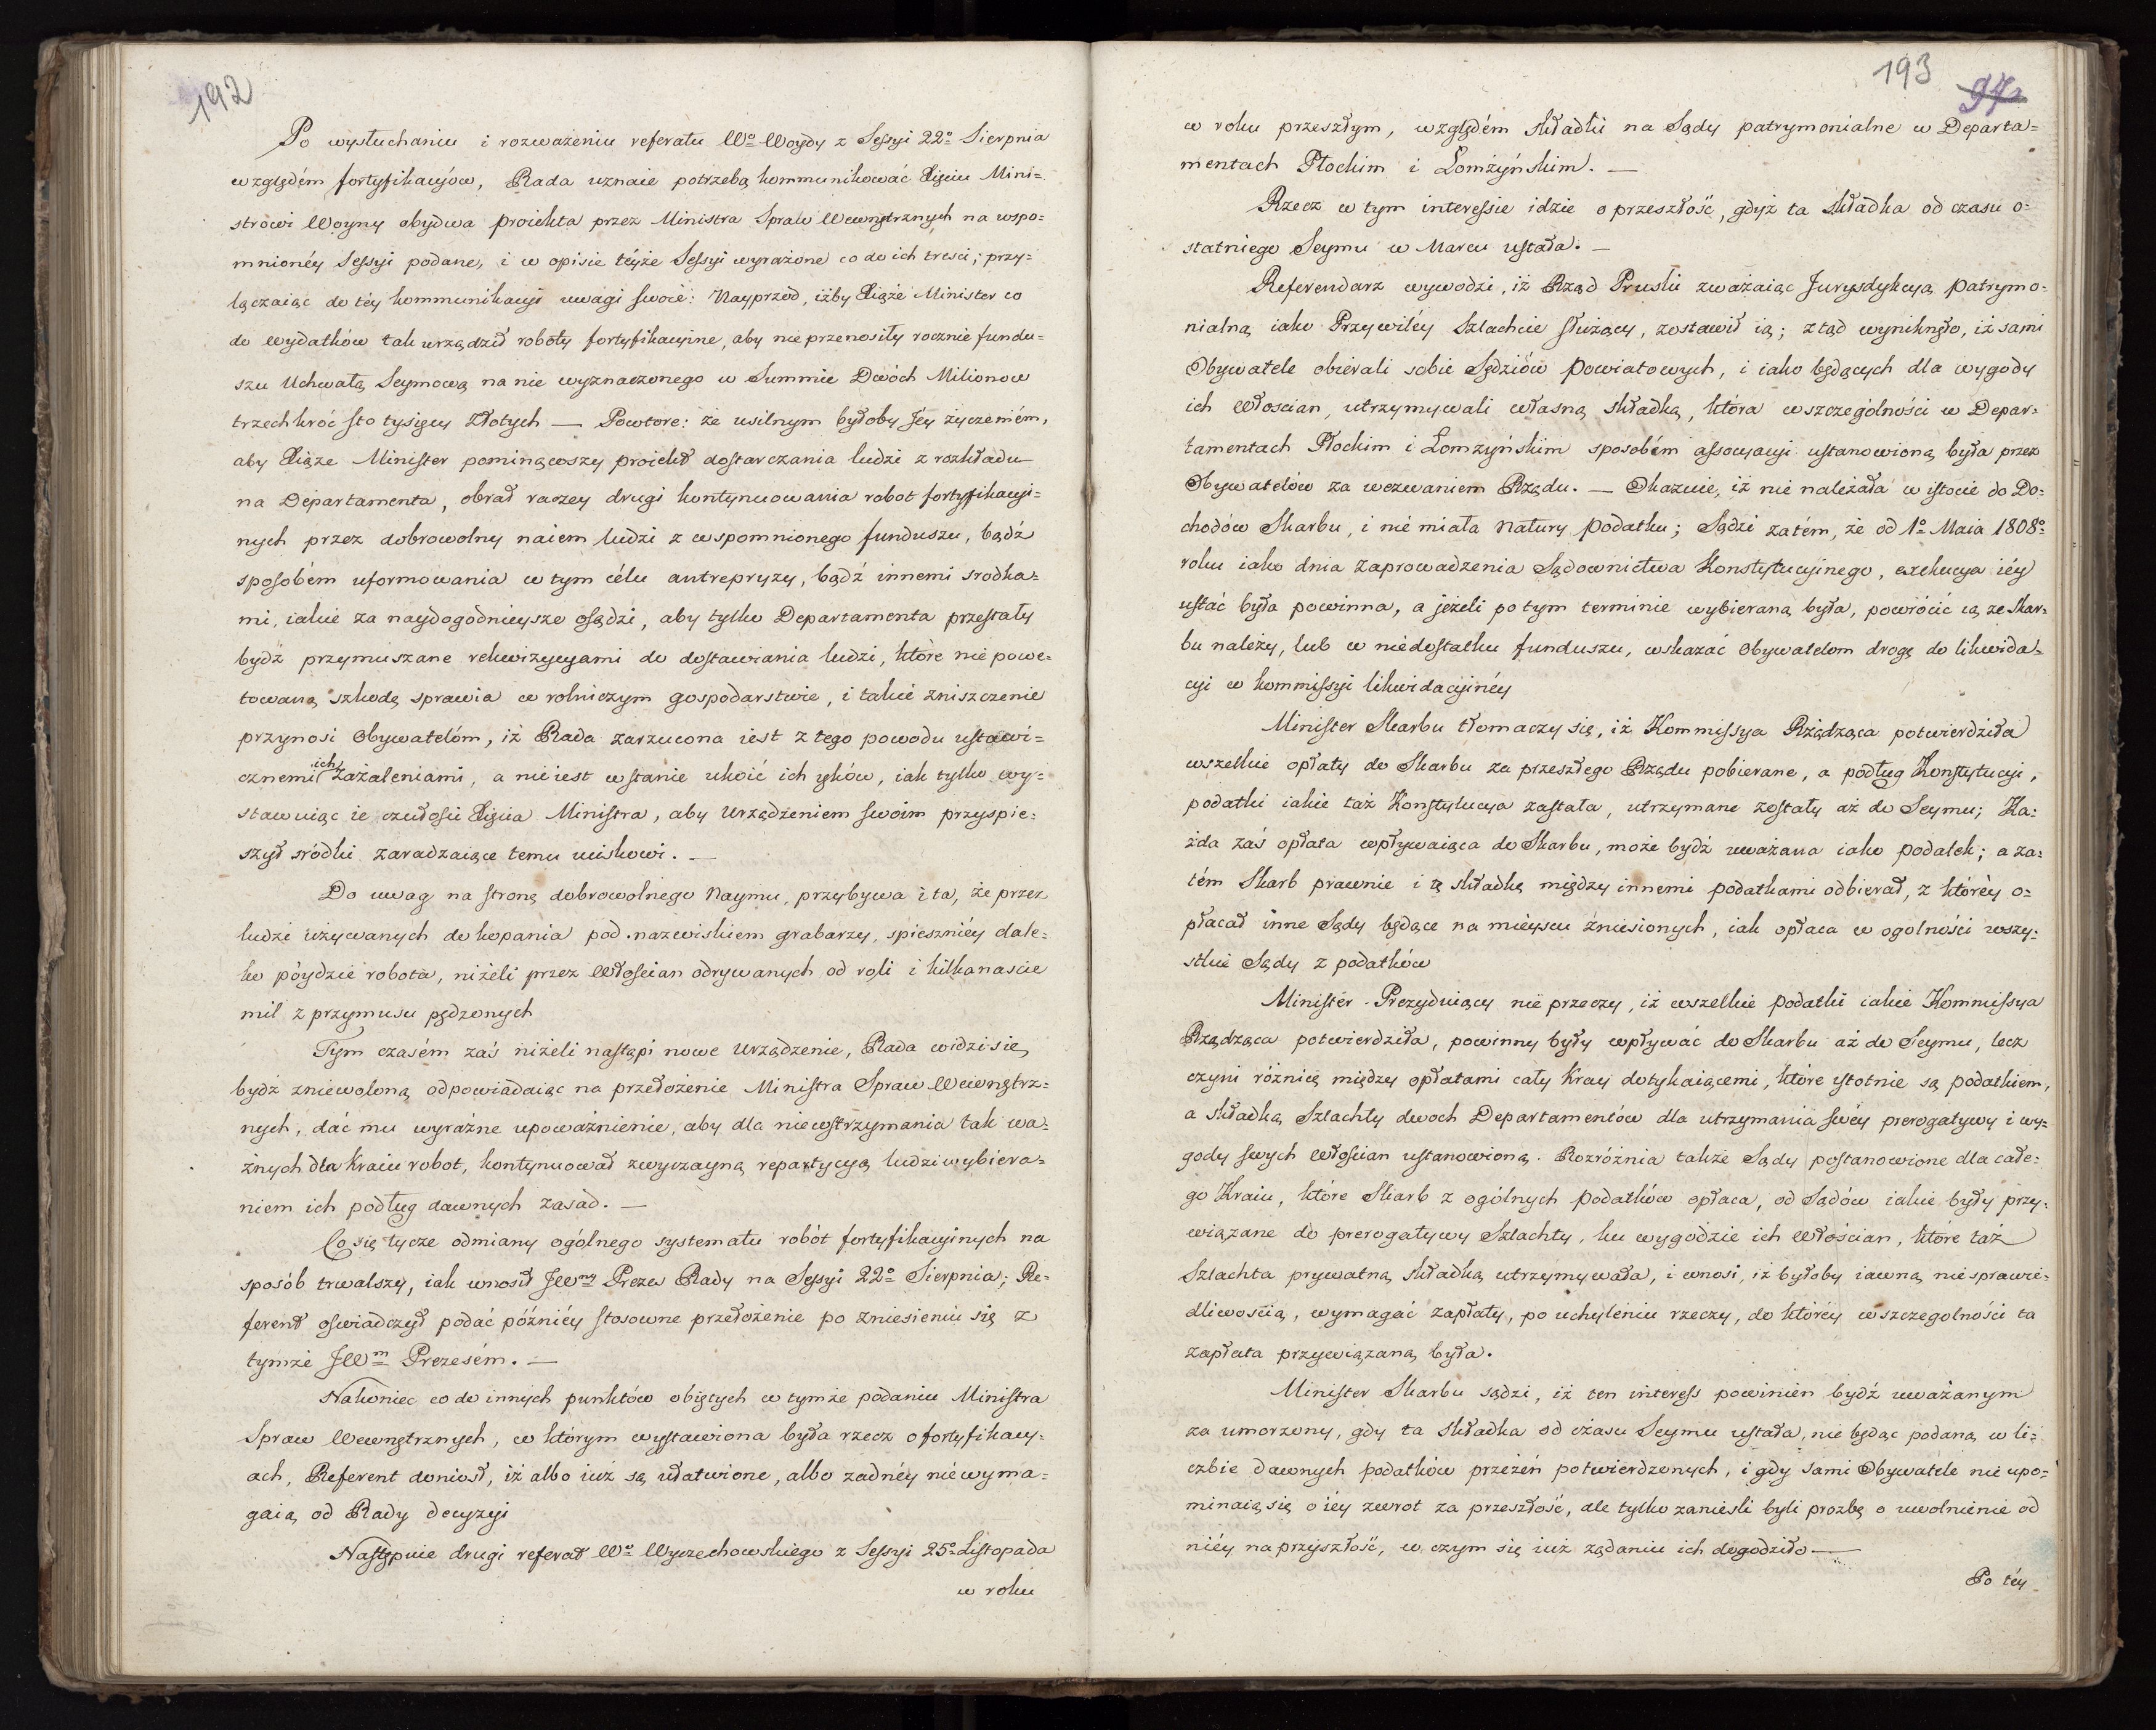 192
Po wysłuchaniu i rozważeniu referatu Wo Woydy z Sessyi 22o Sierpnia
względém fortyfikacyiów, Rada uznaie potrzebą kommunikować Xięciu Mini=
strowi Woyny obydwa proiekta przez Ministra Spraw Wewnętrznych na wspo=
mnionéy Sessyi podane, i w opisie téyże Sessyi wyrażone co do ich tresci; przy=
łączaiąc do téy kommunikacyi uwagi swoié: Nayprzód, iżby Xiąże Minister co
do wydatków tak urządził roboty fortyfikacyine, aby nie przenosiły rocznie fundu=
szu Uchwałą Seymową na nie wyznaczonego w Summie Dwóch Milionow
trzechkroć sto tysięcy Złotych — Powtore: że usilnym byłoby Jéy życzeniém,
aby Xiąże Minister pominąwszy proiekt dostarczania ludzi z rozkładu
na Departamenta, obrał raczey drugi kontynuowania robot fortyfikacyi=
nych przez dobrowolny naiem ludzi z wspomnionego funduszu, bądź
sposobém uformowania w tym célu antrepryzy, bądź innemi srodka=
mi, iakie za naydogodnieysze osądzi, aby tylko Departamenta przestały
bydź przymuszane rekwizycyami do dostawiania ludzi, które nie powe=
towaną szkodę sprawia w rolniczym gospodarstwie, i takié zniszczenie
przynosi Obywatelóm, iż Rada zarzucona iest z tego powodu ustawi=
cznemi ich zażaleniami, a nieiest wstanie ukoić ich ięków, iak tylko wy=
stawuiąc ie czułosci Xięcia Ministra, aby Urządzeniem swoim przyspie=
szył sródki zaradzaiące temu uciskowi. —
Do uwag na stronę dobrowolnego Naymu, przybywa i ta, że przez
ludzi używanych do kopania pod nazwiskiem grabarzy, spieszniéy dale=
ko póydzie robota, niżeli przez Włościan odrywanych od roli i kilkanaście
mil z przymusu pędzonych
Tym czasém zaś niżeli nastąpi nowe Urządzenie, Rada widzi się
bydź zniewoloną odpowiadaiąc na przełożenie Ministra Spraw Wewnętrz=
nych, dać mu wyraźne upoważnienie, aby dla niewstrzymania tak wa=
żnych dla Kraiu robot, kontynuował zwyczayną repartycyą ludzi wybiera=
niem ich podług dawnych zasad. —
Co się tycze odmiany ogólnego systematu robót fortyfikacyinych na
sposób trwalszy, iak wnosił JWny Prezes Rady na Sessyi 22o Sierpnia; Re=
ferent oświadczył podać późniéy stosowne przełożenie po zniesieniu się z
tymże JWm Prezesém. —
Nakoniec co do innych punktów obiętych w tymże podaniu Ministra
Spraw Wewnętrznych, w którym wystawiona była rzecz o fortyfikacy=
ach, Referent doniosł, iż albo iuż są ułatwione, albo żadnéy nie wyma=
gaią od Rady decyzyi
Następnie drugi referat Wo Wyczechowskiego z Sessyi 25o Listopada
w roku
193
97
w roku przeszłym, względém składki na Sądy patrymonialne w Departa=
mentach Płockim i Łomżyńskim. —
Rzecz w tym interessie idzie o przeszłość, gdyż ta składka od czasu o=
statniego Seymu w Marcu ustała. —
Referendarz wywodzi, iż Rząd Pruski zważaiąc Jurysdykcyą patrymo=
nialną iako Przywiléy Szlachcie służący, zostawił ią; ztąd wyniknęło, iż sami
Obywatele obierali sobie Sędziów powiatowych, i iako będących dla wygody
ich Włoscian, utrzymywali własną składką, która wszczególności w Depar=
tamentach Płockim i Lomżyńskim sposobém assocyacyi ustanowioną była przez
Obywatelów za wezwaniem Rządu. — Okazuie, iż nie należała w istocie do Do=
chodów Skarbu, i nié miała Natury podatku; Sądzi zatém, że od 1o Maia 1808o
roku iako dnia zaprowadzenia Sądownictwa Konstytucyinego, exekucya iéy
ustać była powinna, a jeżeli po tym terminie wybieraną była, powrócić ią ze Skar=
bu należy, lub w niedostatku funduszu, wskazać Obywatelom drogę do likwida=
cyi w kommissyi likwidacyinéy
Minister Skarbu tłomaczy się, iż Kommissya Rządząca potwierdziła
wszelkie opłaty do Skarbu za przeszłego Rządu pobierane, a podług Konstytucyi,
podatki iakie taż Konstytucya zastała, utrzymane zostały aż do Seymu; Ka=
żda zaś opłata wpływaiąca do Skarbu, może bydź uważana iako podatek; a za=
tém Skarb prawnie i tę składkę między innemi podatkami odbierał, z któréy o=
płacał inne Sądy będące na mieyscu zniesionych, iak opłaca w ogolności wszy=
stkie Sądy z podatków
Minister Prezyduiący nie przeczy, iż wszelkie podatki iakie Kommissya
Rządząca potwierdziła, powinny były wpływać do Skarbu aż do Seymu, lecz
czyni różnicę między opłatami cały Kray dotykaiącemi, które istotnie są podatkiem,
a składką Szlachty dwoch Departamentów dla utrzymania swéy prerogatywy i wy=
gody swych Włościan ustanowioną. Rozróżnia także Sądy postanowione dla całe=
go Kraiu, które Skarb z ogólnych podatków opłaca, od Sądów iakie były przy=
wiązane do prerogatywy Szlachty, ku wygodzie ich Włościan, które taż
Szlachta prywatną składką utrzymywała, i wnosi, iż byłoby iawną niesprawie=
dliwością, wymagać zapłaty, po uchyleniu rzeczy, do któréy wszczegolności ta
zapłata przywiązaną była.
Minister Skarbu sądzi, iż ten interess powinien bydź uważanym
za umorzony, gdy ta składka od czasu Seymu ustała, nie będąc podaną w li=
czbie dawnych podatków przezeń potwierdzonych, i gdy sami Obywatele nie upo=
minaią się o iéy zwrot za przeszłość, ale tylko zanieśli byli prozbę o uwolnienie od
niéy na przyszłość, w czym się iuż żądaniu ich dogodziło —
Po téy